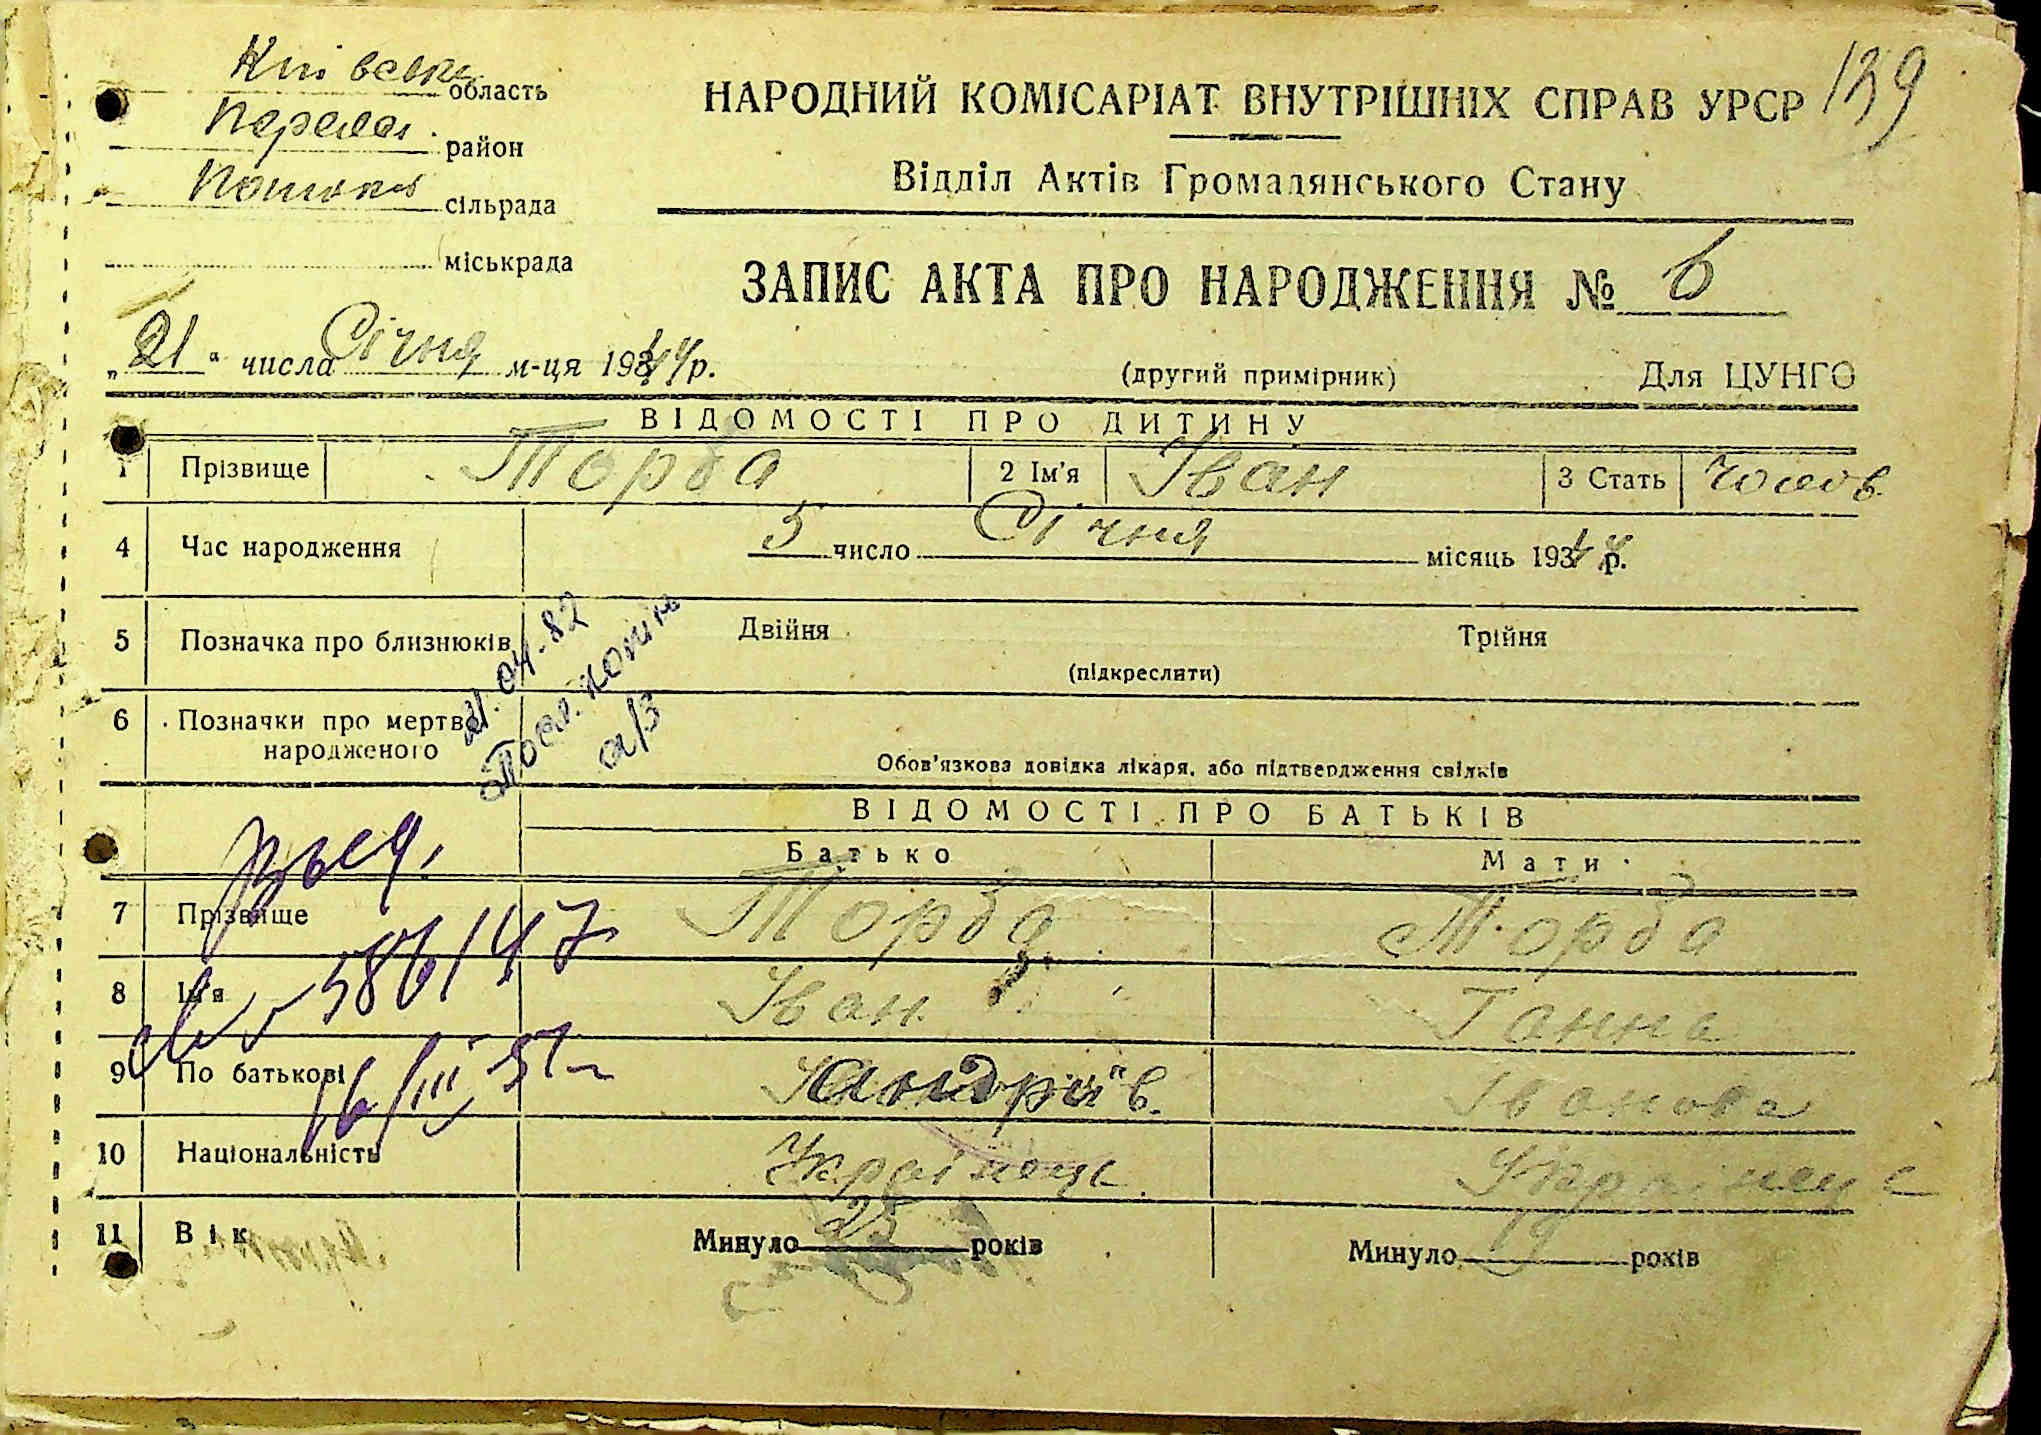 Київська область
Переяс. район
сільрада
міськрада
139
НАРОДНИЙ КОМІСАРІАТ ВНУТРІШНІХ СПРАВ УРСР
Відділ Актів Громадянського Стану
ЗАПИС АКТА ПРО НАРОДЖЕННЯ № 6
„21" числа Січня м-ця 1944 р.
(другий примірник)
Для ЦУНГО
ВІДОМОСТІ ПРО ДИТИНУ
1 Прізвище Торба 2 Ім'я Іван 3 Стать Чолов.
4 Час народження 5 число Січня місяць 1944 р.
5 Позначка про близнюків Двійня Трійня
(підкреслити)
6 Позначки про мертво народженого
Обов'язкова довідка лікаря, або підтвердження свідків
21.04-82
Посл. копия
а/З
ВІДОМОСТІ ПРО БАТЬКІВ
Батько Мати
Выд.
7 Прізвище Торба Торба
8 Ім'я Іван Ганна
586147
9 По батькові Андріїв. Іванова
16/III 51 г
10 Національність Українец Українец
11 Вік Минуло 25 років Минуло 19 років